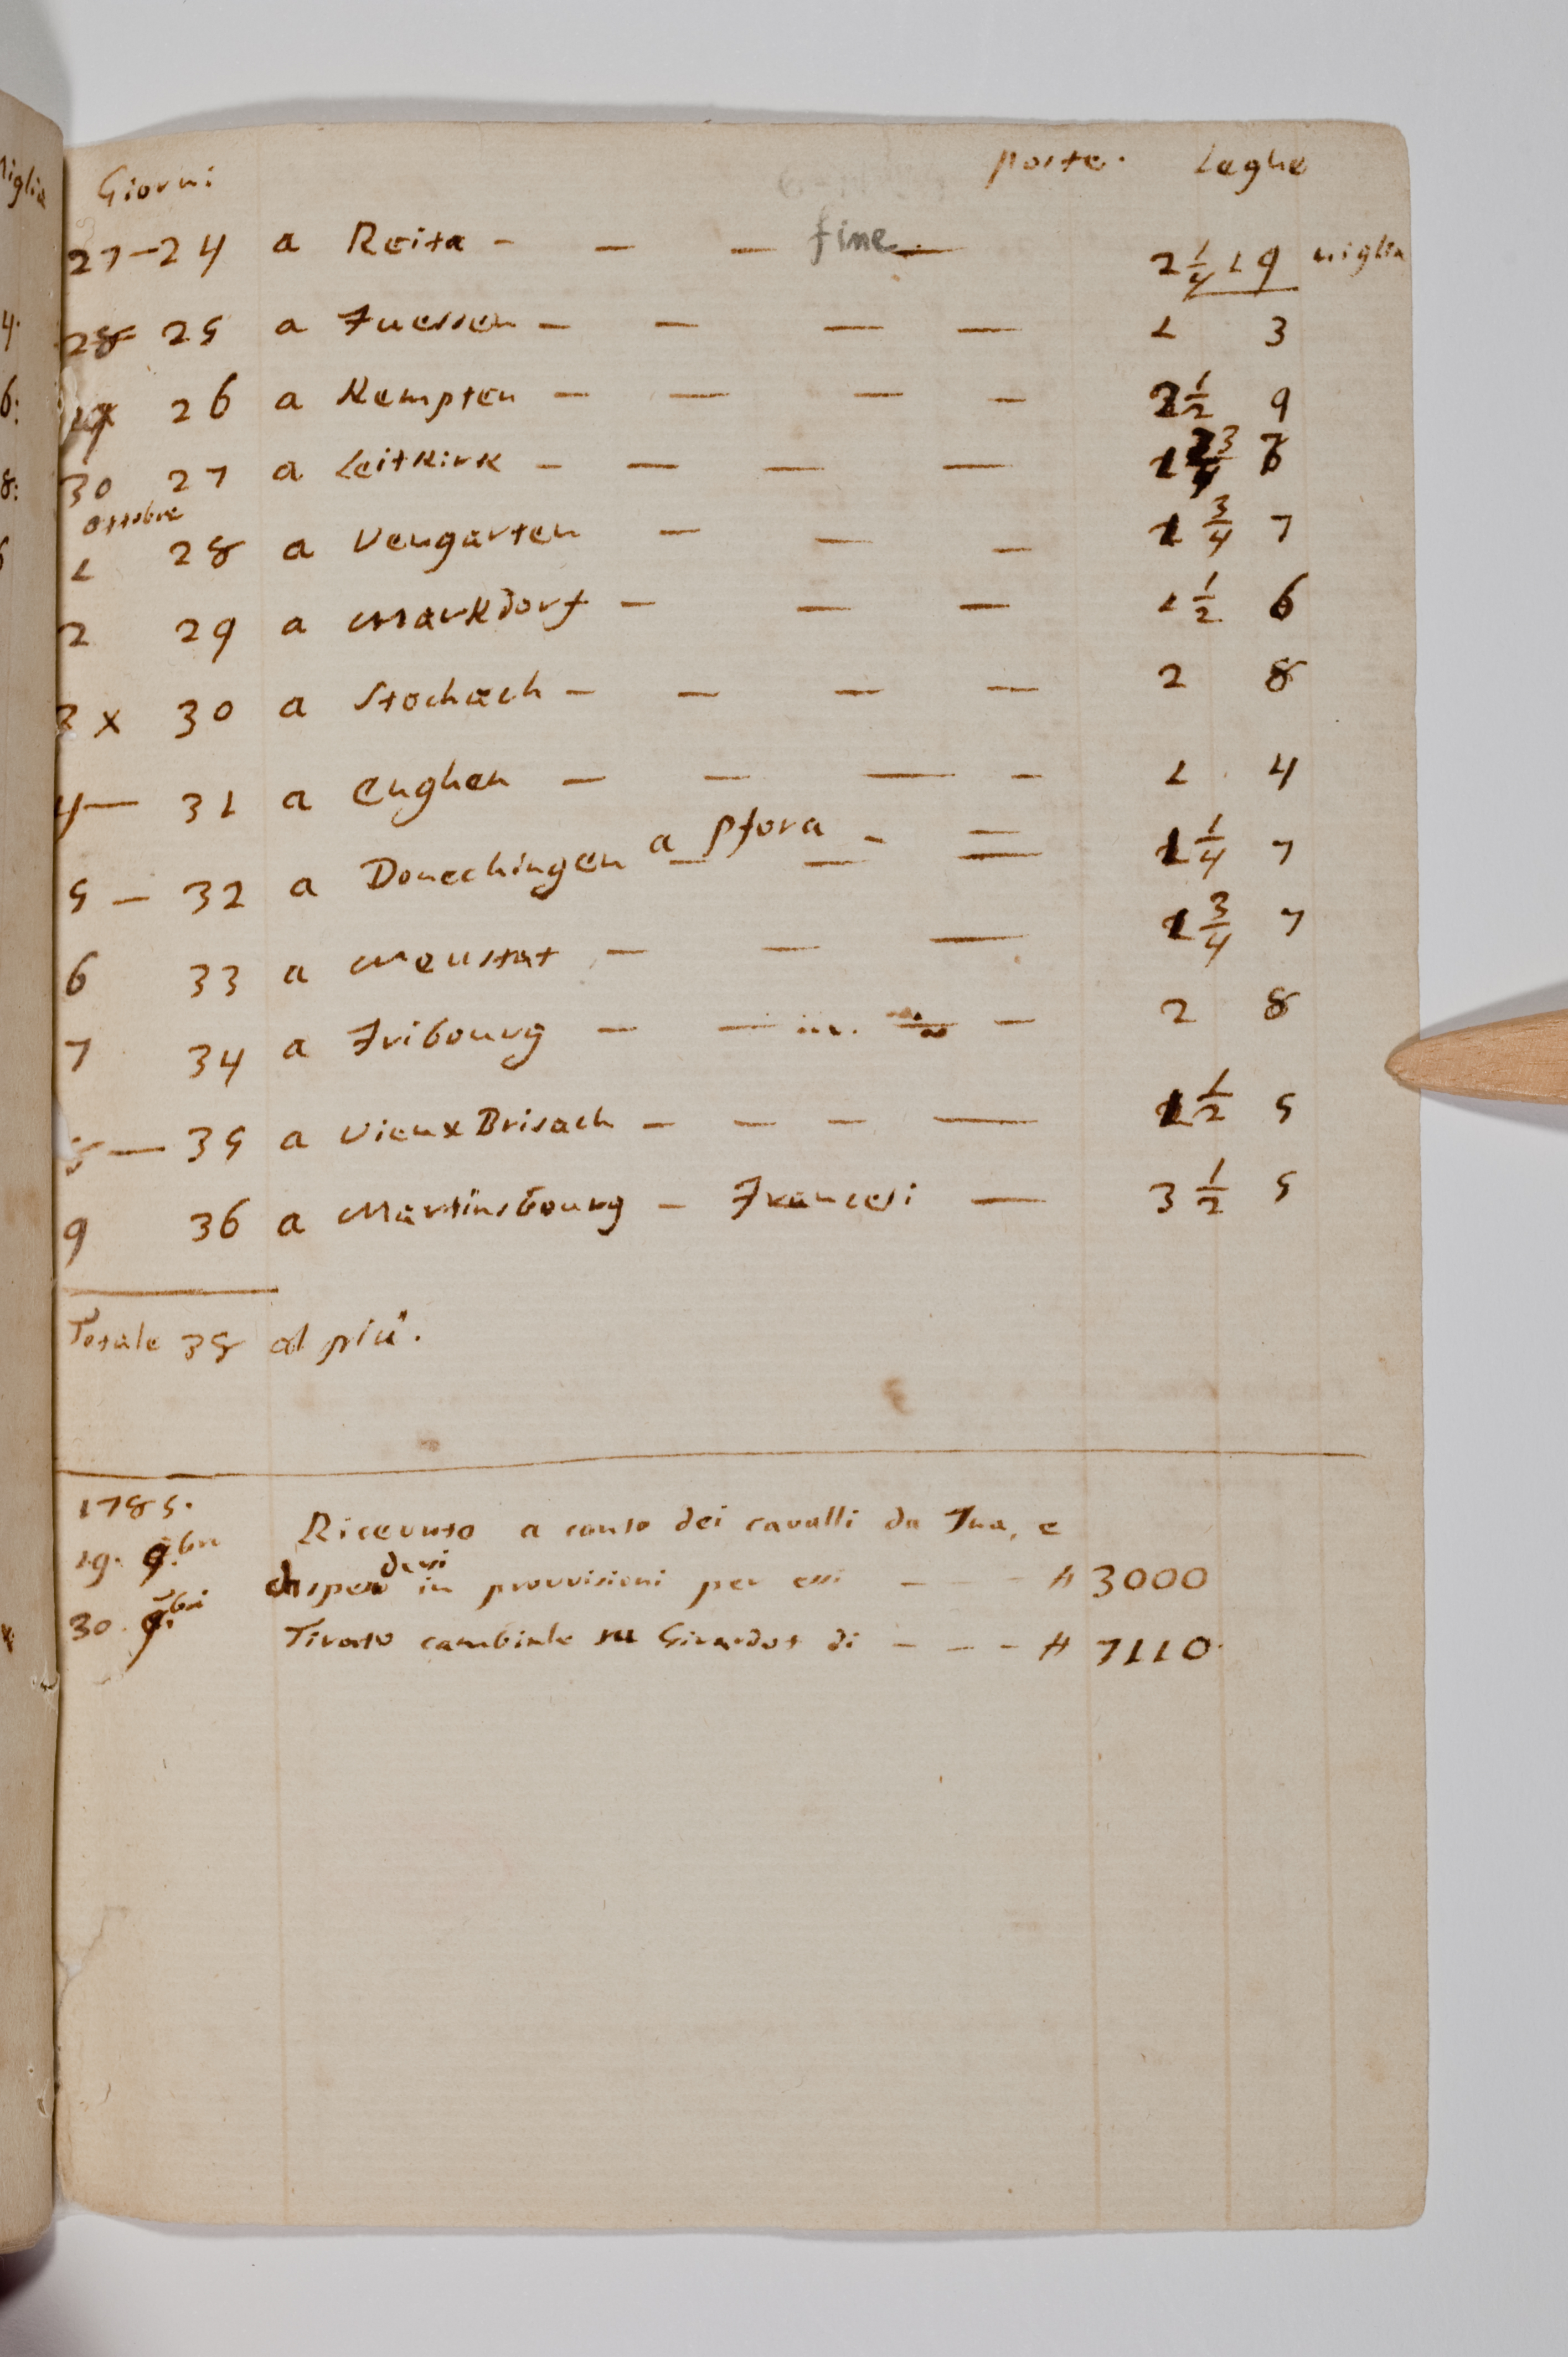 Giorni poste. Leghe
27-24 a Reita - - - fine - 2 1/4 19 miglia
28 25 a Fuessen - - - - 1 3
26 a Kempten - - - - 2 1/2 9
30 27 a Leitkirk - - - - 1 3/4
ottobre
1 28 a Vengarten - - - 1 3/4 7
2 29 a Markdorf - - - 1 1/2 6
3 x 30 a Stochach - - - - 2 8
4 - 31 a Enghen - - - - 1 4
a Pfora - -
5 - 32 a Donechingen - - - 1 1/4 7
6 33 a Neustat - - - 1 3/4 7
7 34 a Fribourg - - - 2 8
- 35 a Vieux Brisach - - - - 1 1/2 5
9 36 a Martinsbourg - Francesi - 3 1/2 5
Totale 38 al più.
1785.
19. 9.bre Ricevuto a conto dei cavalli da Tua, e
darsi
in provvisioni per essi - - - # 3000
30. 9.bre Tirato cambiale su Girardot di - - - # 7110.